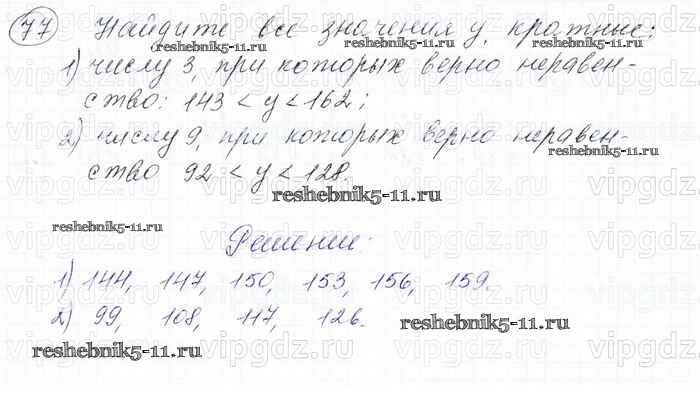 77 Найдите все значения y, кратные:
reshebnik5-11.ru reshebnik5-11.ru
1) числу 3, при которых верно неравен-
ство: 143 < y < 162;
2) числу 9, при которых верно неравен-
reshebnik5-11.ru reshebnik5-11.ru
ство 92 < y < 128.
reshebnik5-11.ru
reshebnik5-11.ru
Решение:
1) 144, 147, 150, 153, 156, 159.
2) 99, 108, 117, 126.
reshebnik5-11.ru
reshebnik5-11.ru
vipgdz.ru